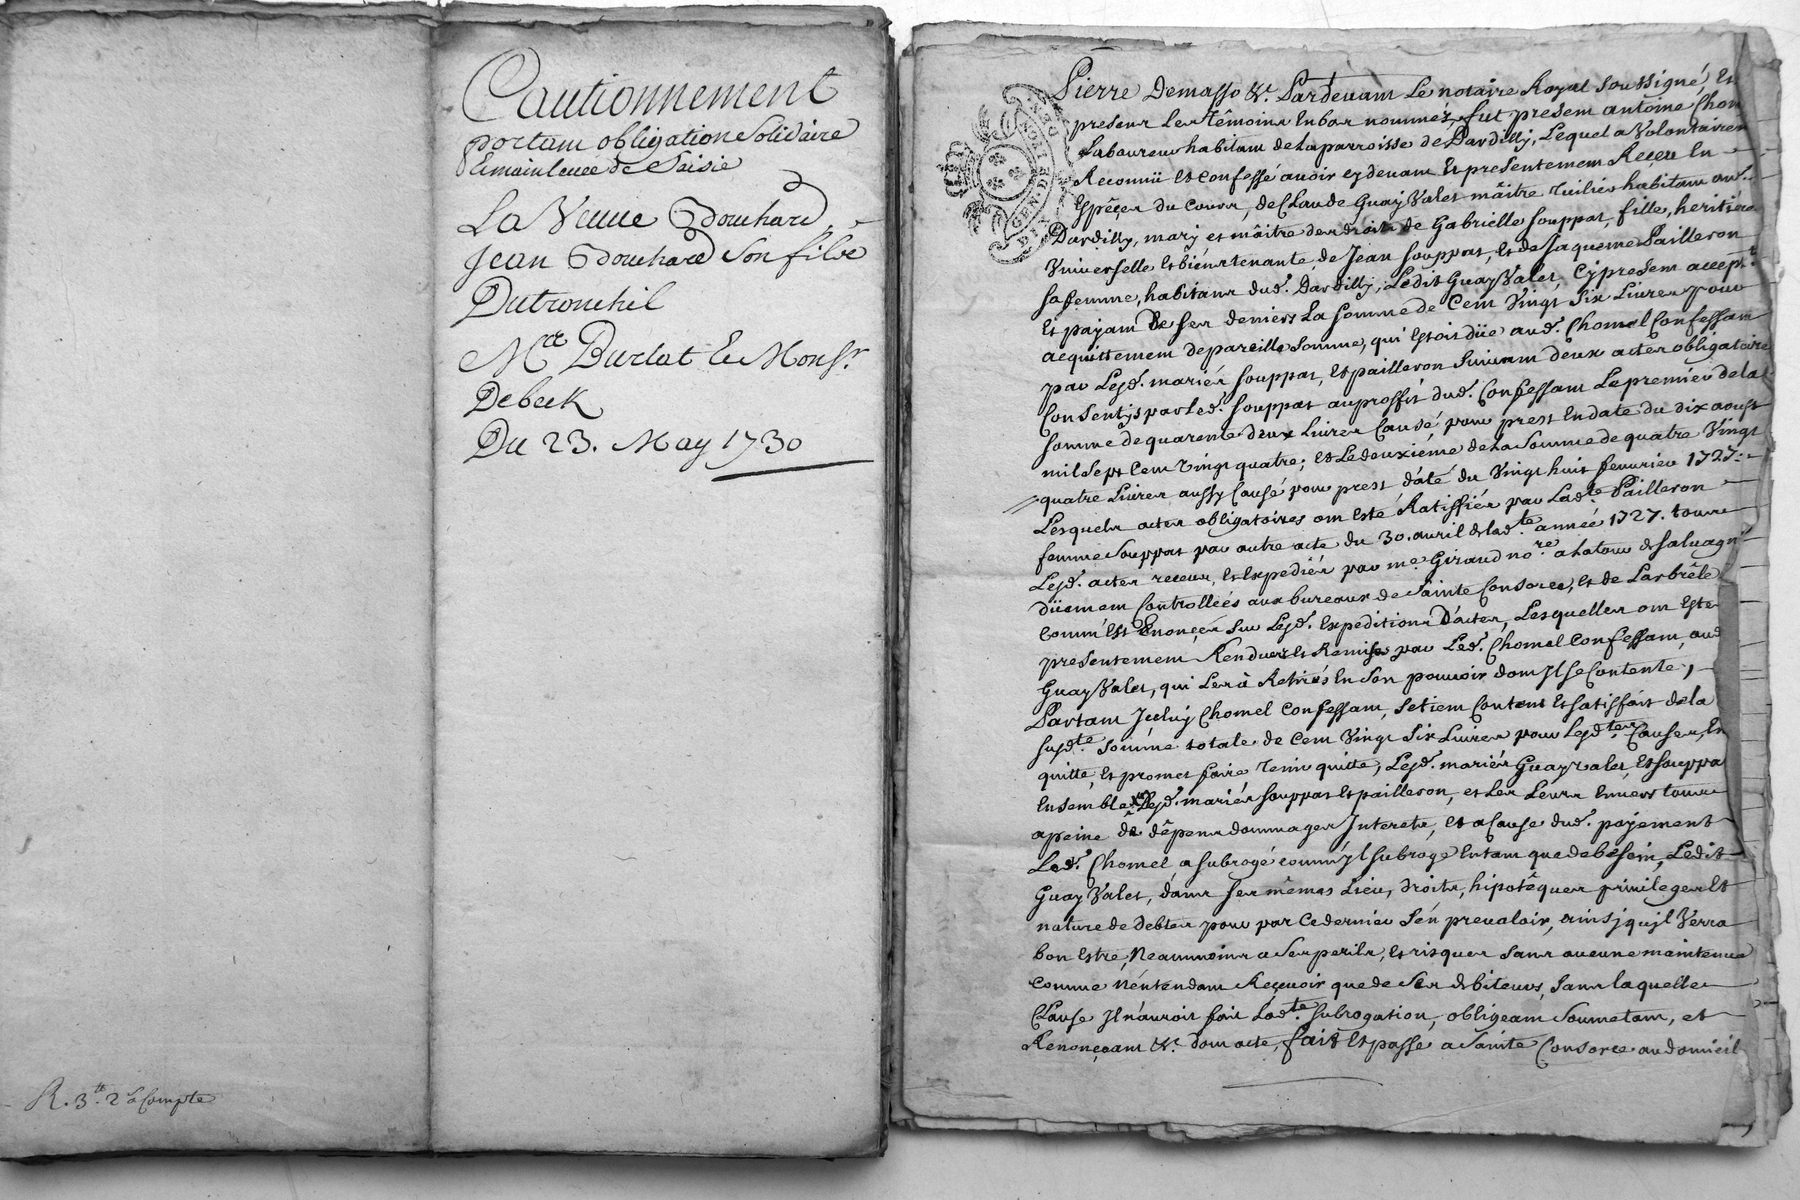 Cautionnement
portam obligation Solidaire
Et mainleuée de Saisie
La Veuue Bouchard
Jean Bouchard Son fils
Dutronchil
Mre Burlat Et Monsr.
Debeck
Du 23. May 1730
R. 3tt. 2s a Compte
GEN DE LION
Pierre Demasso &c. Pardeuant Le notaire Royal Soussigné, En
presence Les Témoins En bas nommés, fut present antoine Chom
Laboureur habitant de La parroisse de Dardilly, Lequel a Volontairem
Reconnü Et Confessé auoir cy deuant Et presentement Receu En
Espéces du Cours, de Claude Guay Valet maître Tuilier habitant aud.
Dardilly, mary et maître des droits de Gabrielle Souppat, fille, heritiére
Vniverselle Et biens tenante de Jean Souppat, Et de Jaqueme Pailleron
Sa femme, habitans dud. Dardilly; Ledit Guay Valet, Cy present accept.t
Et payant De Ses deniers La Somme de Cent Vingt Six Liures pour
acquittement de pareille Somme, qui Estoit düe aud. Chomel Confessant
par Lesd. mariés Souppat, Et pailleron Suiuant deux actes obligatoires
Consentis par Led. Souppat au proffit dud. Confessant Le premier de la
Somme de quarente deux Liures Causé pour prest En date du dix aoust
mil Sept Cent Vingt quatre; Et Le deuxiéme de La Somme de quatre Vingt
quatre Liures aussy Causé pour prest daté du Vingt huit feuurier 1727.
Lesquels actes obligatoires ont Esté Ratiffiés par Ladte. Pailleron
femme Souppat par autre acte du 30. auril de lad.te année 1727. tous
Lesd. actes receus, Et Expediés par me. Giraud nore. a La tour de Saluagny
düement Controllées aux bureaux de Sainte Consorce, Et de Larbrêle
Comm'Est Enonçés Sur Lesd. Expeditions D'actes, Lesquelles ont Esté
presentement Rendues Et Remises par Led. Chomel Confessant, aud
Guay Valet, qui Les à Retirés En Son pouuoir dont Il Se Contente;
Partant Jceluy Chomel Confessant, Se tient Content Et Satisfait de la
Susd.te Somme totale de Cent Vingt Six Liures pour Lesd.tes Causes, En
quitte, Et promet faire Tenir quitte, Lesd. mariés Guay Valet, Et Souppa
Ensemble Lesd. mariés Souppat Et pailleron, et Les Leurs Enuers tous
apeine de dépens dommages Interets, Et a Cause dud. payement
Led. Chomel a Subrogé comm'jl Subroge En tant que de besoin, Ledit
Guay Valet, dans Ses mêmes Lieu, droits, hipotêques priuileges Et
nature de debtes pour par Ce dernier S'en preualoir, ainsj qu'jl Verra
bon Estre, Neanmoins a Ses perils, Et risques Sans aucune maintenue
Comme n'entendant Reçeuoir que de Ses debiteurs, Sans laquelle
Clause Il n'auroit fait Lad.te Subrogation, obligeant Soumetant, et
Renonçant &c. dont acte, fait Et passé a Sainte Consorce au domicil